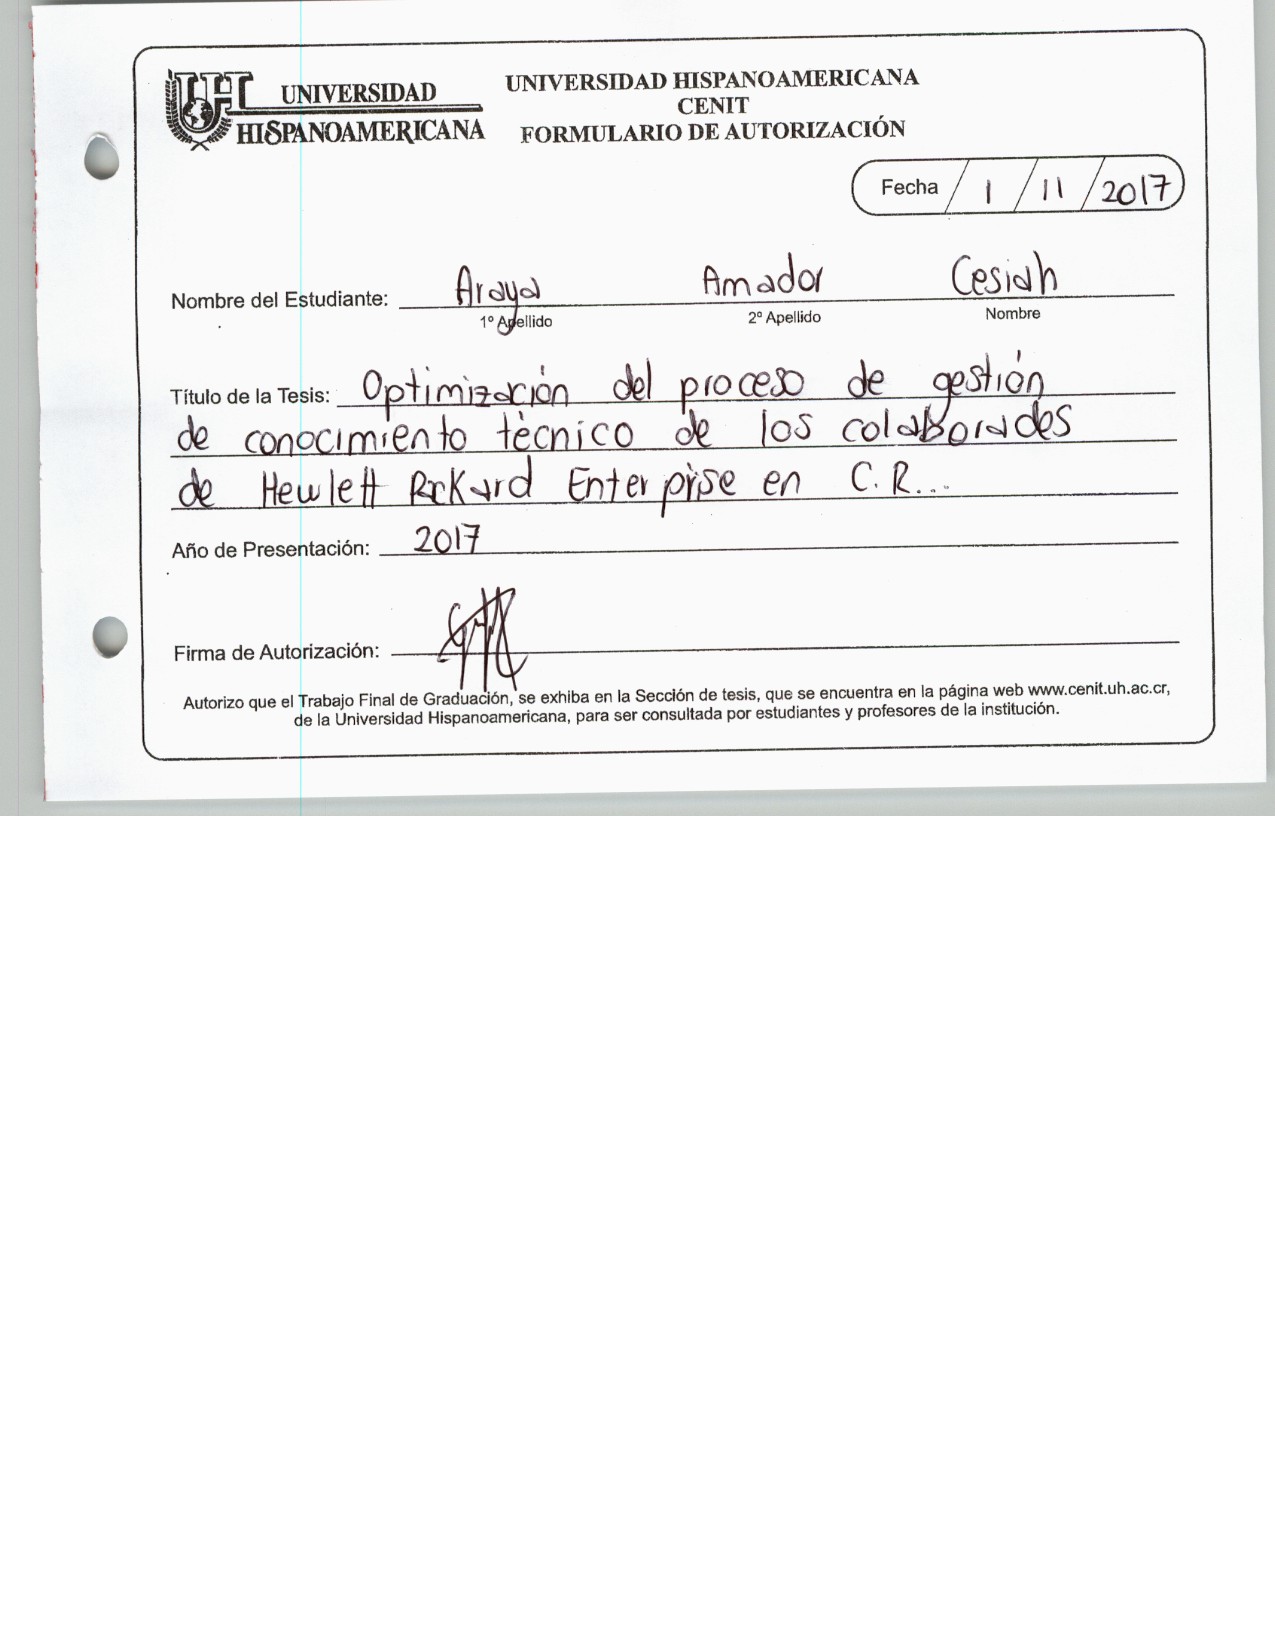 UNIVERSIDAD
HISPANOAMERICANA
UNIVERSIDAD HISPANOAMERICANA
CENIT
FORMULARIO DE AUTORIZACIÓN
Fecha / 1 / 11 / 2017
Nombre del Estudiante: Araya Amador Cesiah
1º Apellido 2º Apellido Nombre
Título de la Tesis: Optimización del proceso de gestión
de conocimiento técnico de los colaborades
de Hewlett Packard Enterprise en C.R...
Año de Presentación: 2017
Firma de Autorización:
Autorizo que el Trabajo Final de Graduación, se exhiba en la Sección de tesis, que se encuentra en la página web www.cenit.uh.ac.cr,
de la Universidad Hispanoamericana, para ser consultada por estudiantes y profesores de la institución.